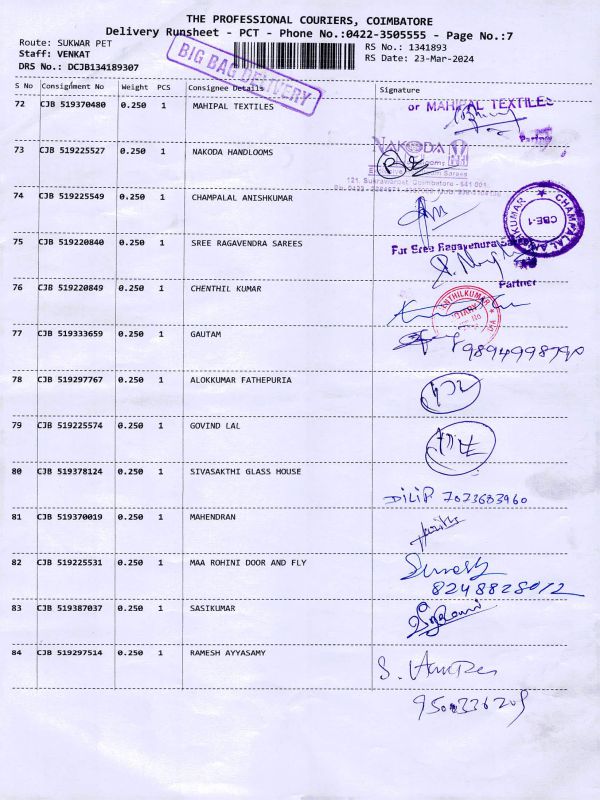 THE PROFESSIONAL COURIERS, COIMBATORE
Delivery Runsheet - PCT - Phone No.:0422-3505555 - Page No.:7
Route: SUKWAR PET
RS No.: 1341893
Staff: VENKAT
RS Date: 23-Mar-2024
DRS No.: DCJB134189307
BIG BAG DELIVERY
S No Consignment No Weight PCS Consignee Details Signature
72 CJB 519370480 0.250 1 MAHIPAL TEXTILES
or MAHIPAL TEXTILES
Partner
73 CJB 519225527 0.250 1 NAKODA HANDLOOMS
NAKODA
74 CJB 519225549 0.250 1 CHAMPALAL ANISHKUMAR
CHAMPALAL ANISHKUMAR
CBE-1
75 CJB 519220840 0.250 1 SREE RAGAVENDRA SAREES
For Sree Ragavendra Sa
Partner
76 CJB 519220849 0.250 1 CHENTHIL KUMAR
77 CJB 519333659 0.250 1 GAUTAM
9894998790
78 CJB 519297767 0.250 1 ALOKKUMAR FATHEPURIA
79 CJB 519225574 0.250 1 GOVIND LAL
80 CJB 519378124 0.250 1 SIVASAKTHI GLASS HOUSE
DILIP 7073683960
81 CJB 519370019 0.250 1 MAHENDRAN
82 CJB 519225531 0.250 1 MAA ROHINI DOOR AND FLY
Suresh
8248828012
83 CJB 519387037 0.250 1 SASIKUMAR
84 CJB 519297514 0.250 1 RAMESH AYYASAMY